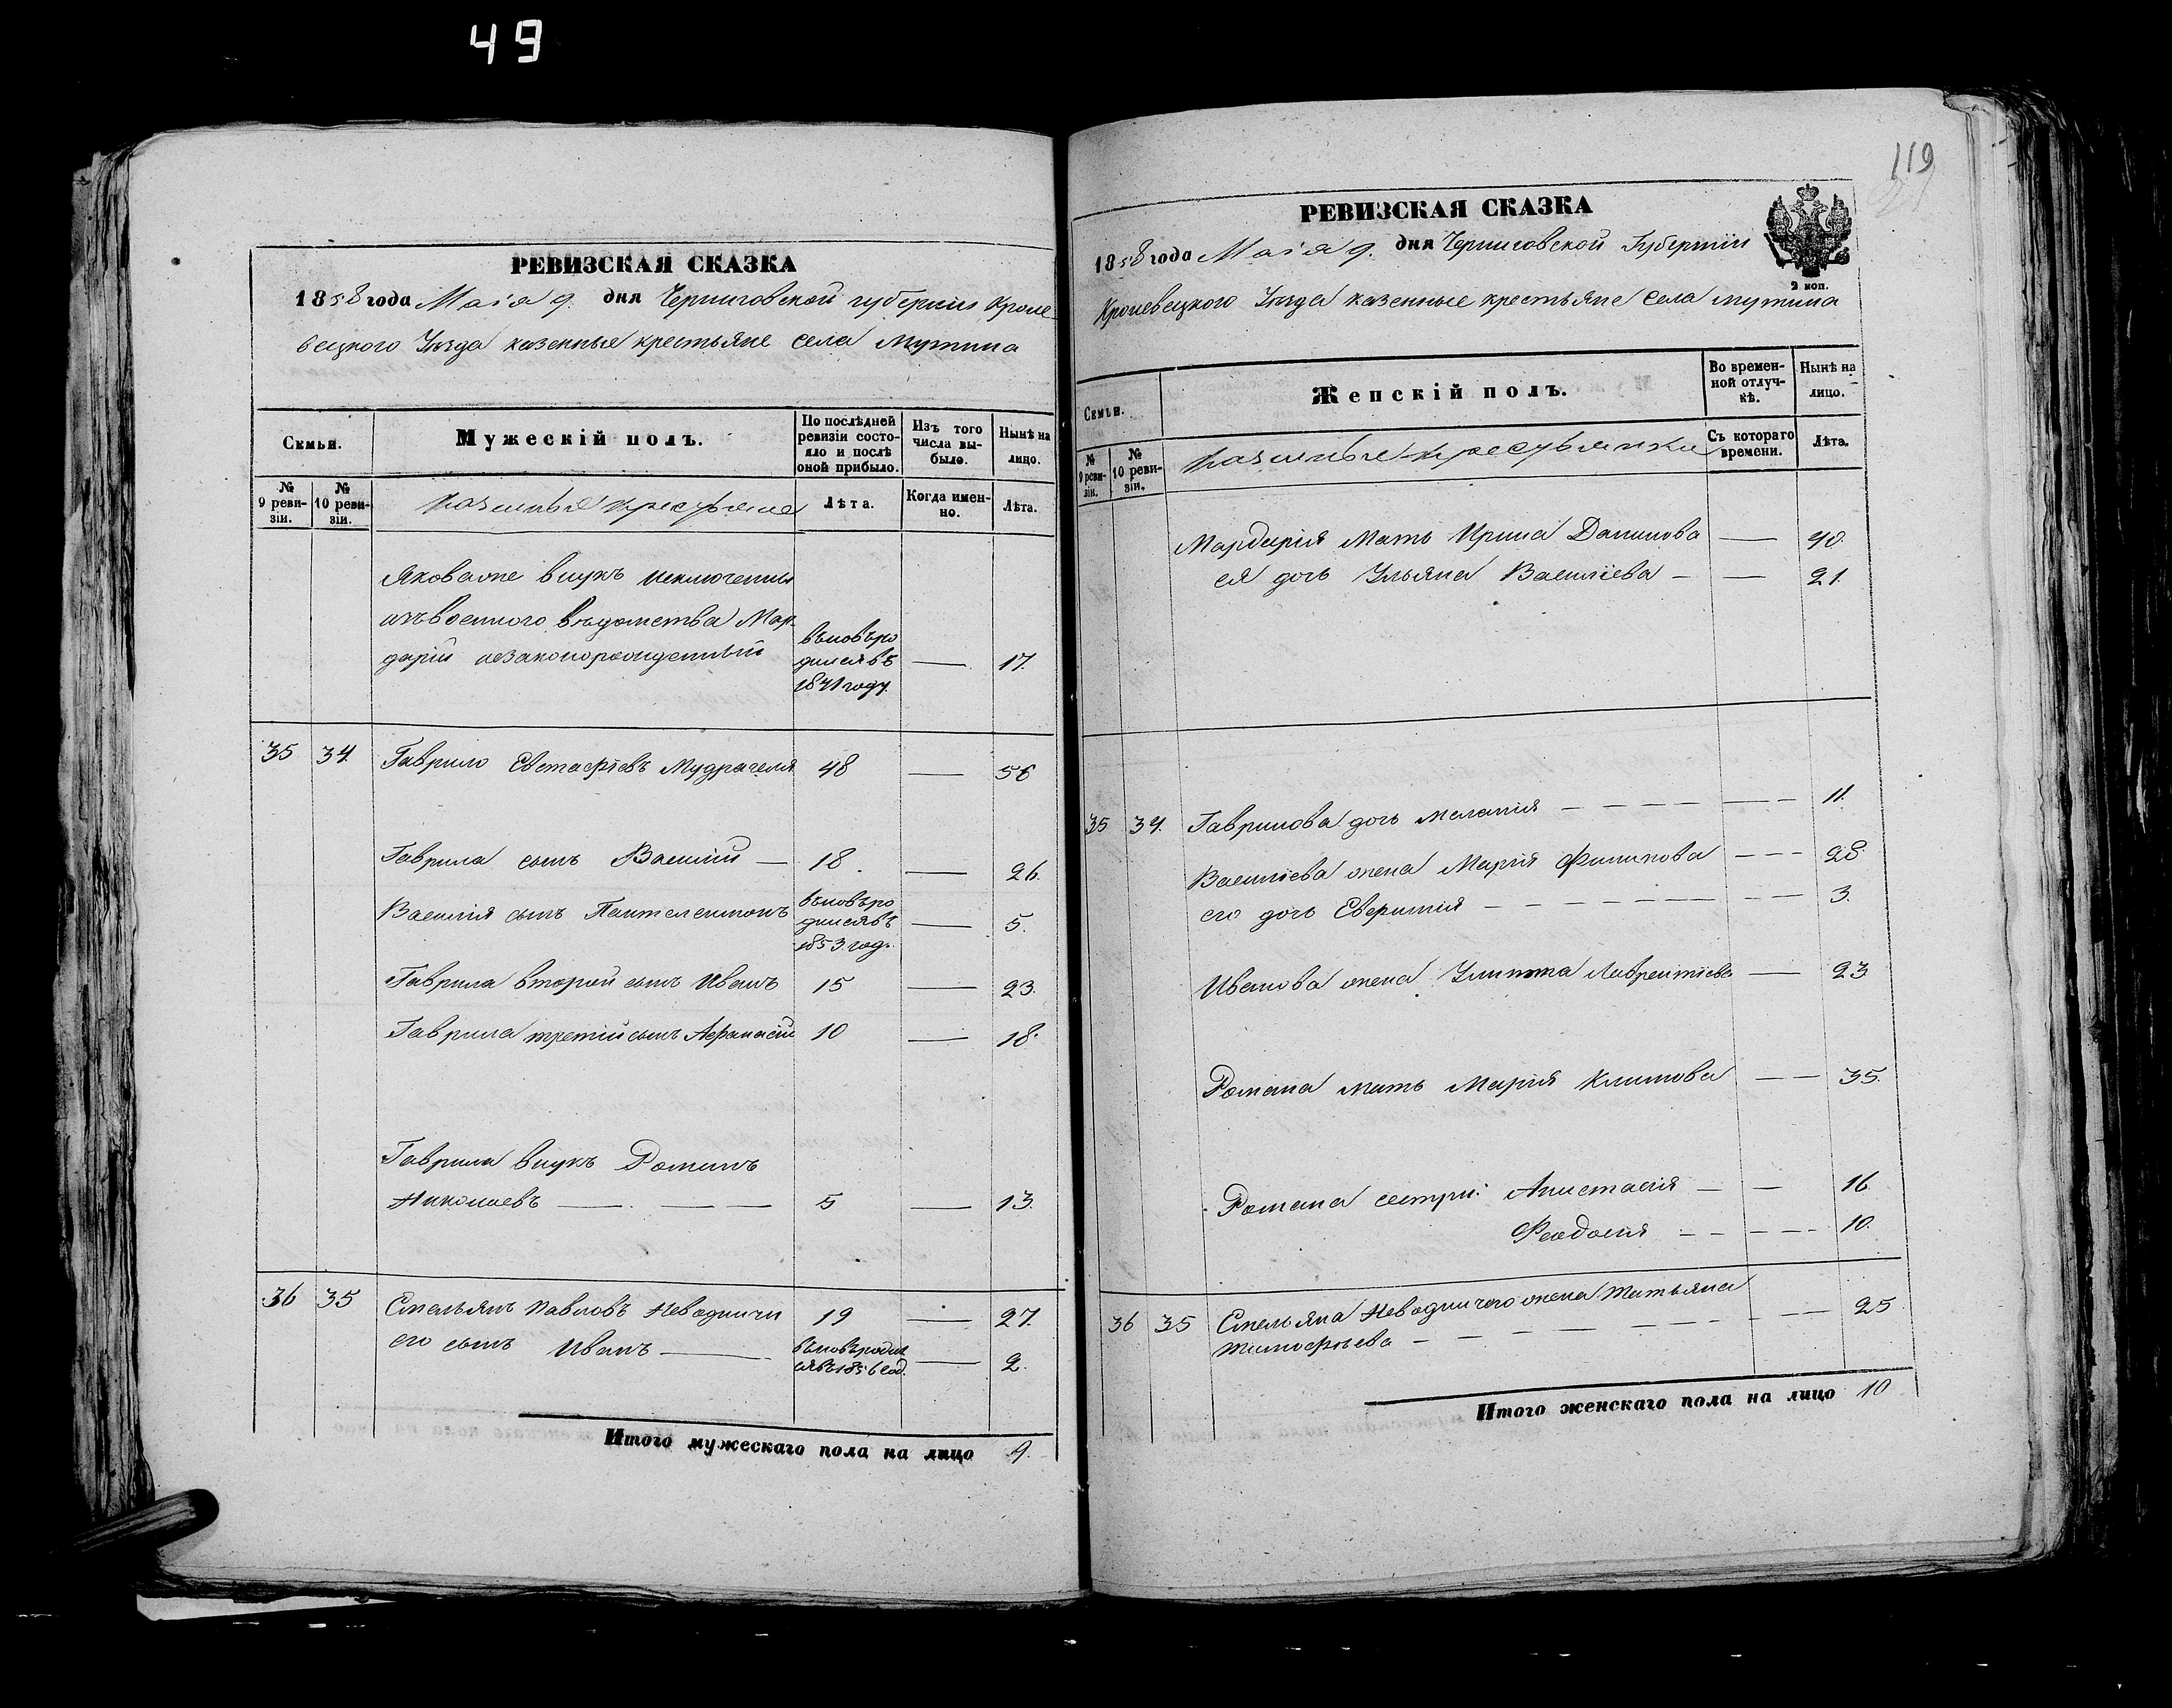 49
РЕВИЗСКАЯ СКАЗКА
1858 года Маія 9. дня Черниговской губерніи Кроле-
вецкого Уѣзда казенные крестьяне села Мутина
Семьи.
Мужескій полъ.
По послѣдней ревизіи состо-яло и послѣ оной прибыло.
Изъ того числа вы-было.
Нынѣ на лицо.
№ 9 реви-зіи.
№ 10 реви-зіи.
Казенные крестьяне
Лѣта.
Когда имен-но.
Лѣта.
Яковенне внукъ исключенный
изъ военного вѣдомства Мар-
дарій незаконорожденный
вновь ро
дился въ
1841 году.
— 17.
35 34. Гаврило Евстафіевъ Мудрагеля 48 — 56
Гаврила сынъ Василій — 18. — 26.
Василія сынъ Пантелеимонъ
вновь ро
дился въ
1853. год.
— 5.
Гаврила второй сынъ Иванъ 15 — 23.
Гаврила третій сынъ Афанасій 10 — 18.
Гаврила внукъ Романъ
Николаевъ — — — 5 — 13.
36 35 Емельянъ Павловъ Неводничи 19 — 27.
его сынъ Иванъ —
вновь родил
ся въ 1856 год.
— 2.
Итого мужескаго пола на лицо 9.
119
РЕВИЗСКАЯ СКАЗКА
1858 года Маія 9. дня Черниговской Губерніи
2 коп.
Кролевецкого Уѣзда казенные крестьяне села Мутина
Семьи.
Женскій полъ.
Во времен-ной отлуч-кѣ.
Нынѣ на лицо.
№ 9 реви-зіи.
№ 10 реви-зіи.
Казенные крестьянки
Съ котораго времени.
Лѣта.
Мардарія мать Ирина Данилова — 40.
ея дочь Ульяна Василіева — — 21.
35 34. Гаврилова дочь Меланія — — — — — — 11.
Василіева жена Марія Филипова — — — 28.
его дочь Евфимія — — — — — — — — — 3.
Иванова жена Улита Лаврентіева — 23
Романа мать Марія Климова — — 35.
Романа сестри: Анастасія — — 16.
Феодосія — — — — — 10.
36 35 Емельяна Неводничего жена Татьяна
Тимофѣева — — — — — — — — — 25
Итого женскаго пола на лицо 10